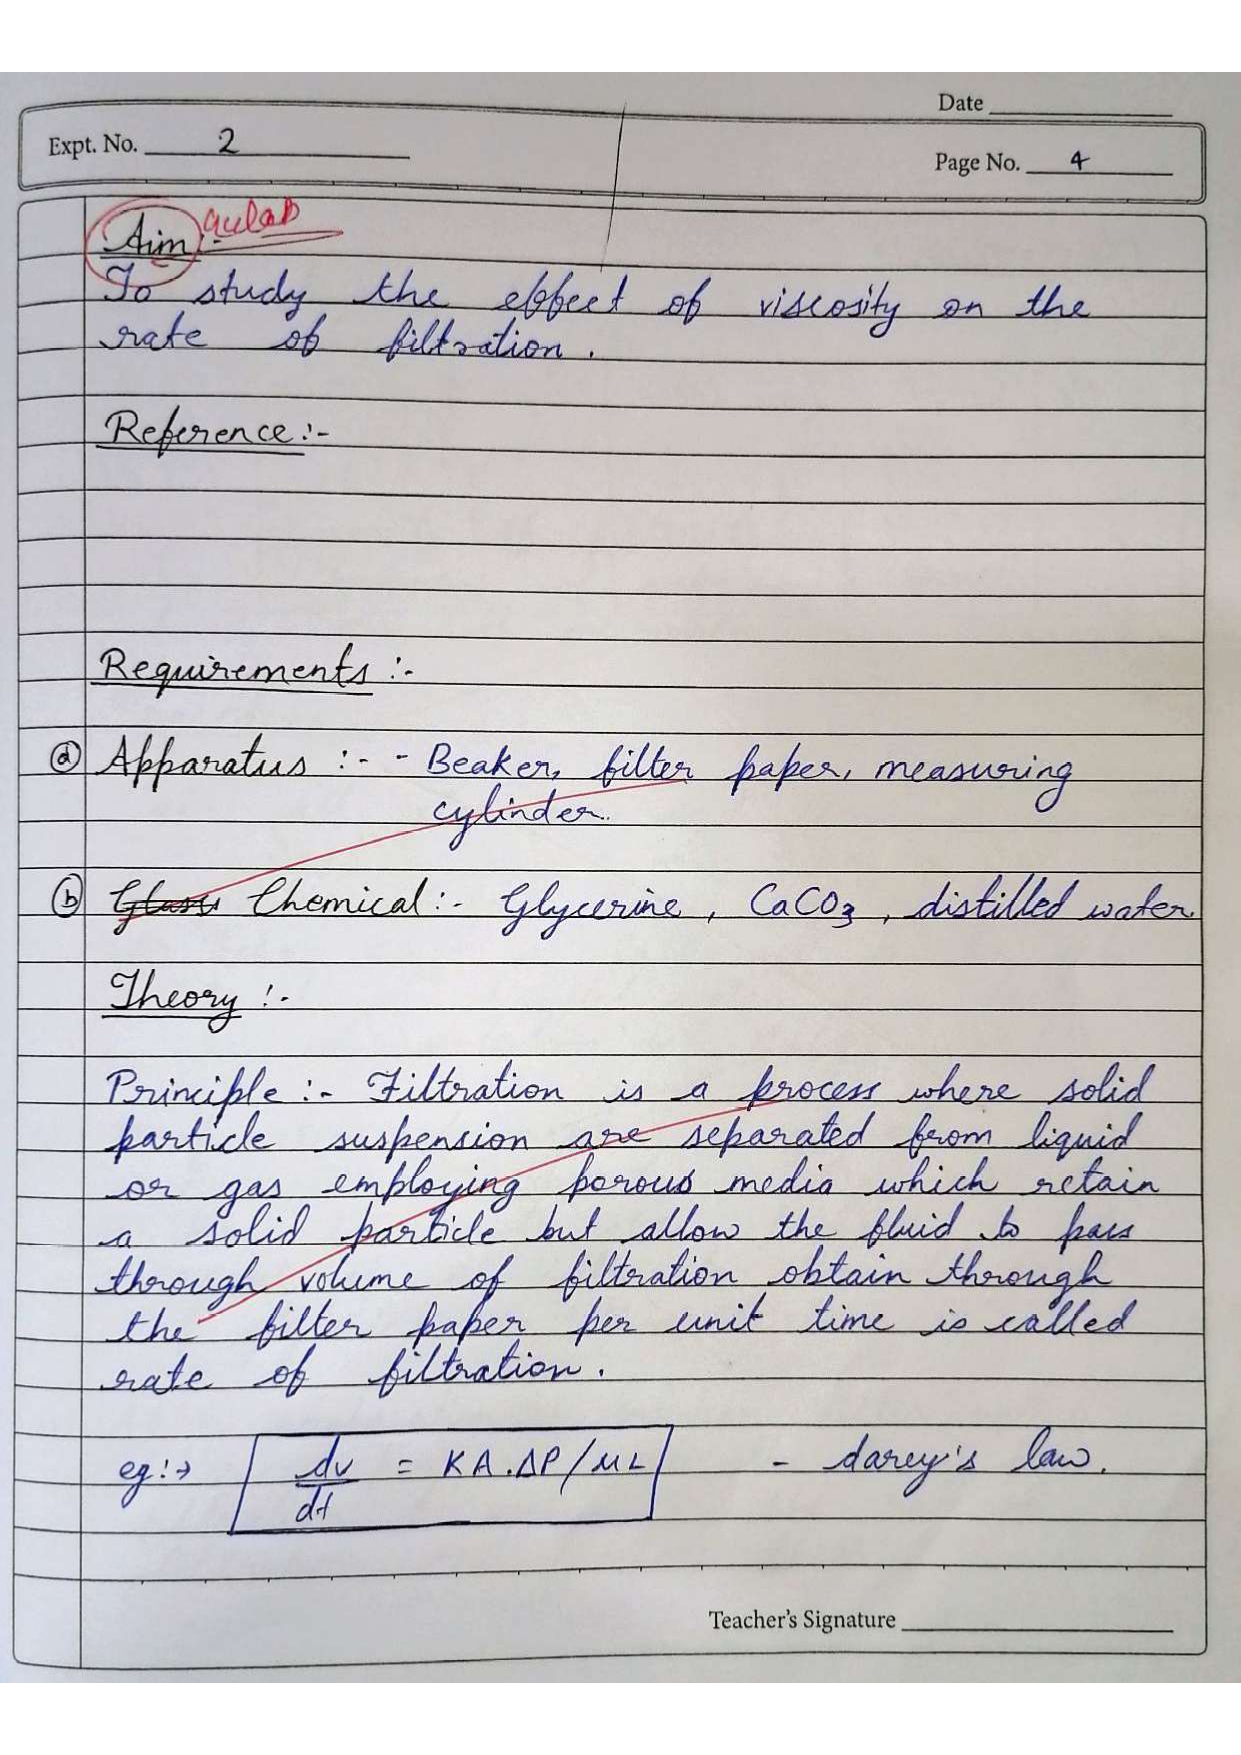 Date
Expt. No. 2
Page No. 4
Aim :-
To study the effect of viscosity on the
rate of filtration.
Reference :-
Requirements :-
(a) Apparatus :- - Beaker, filter paper, measuring
cylinder.
(b) Chemical :- Glycerine, CaCO3, distilled water.
Theory :-
Principle :- Filtration is a process where solid
particle suspension are separated from liquid
or gas employing porous media which retain
a solid particle but allow the fluid to pass
through volume of filtration obtain through
the filter paper per unit time is called
rate of filtration.
eg :→ dv/dt = KA.ΔP/μL - darcy's law.
Teacher's Signature